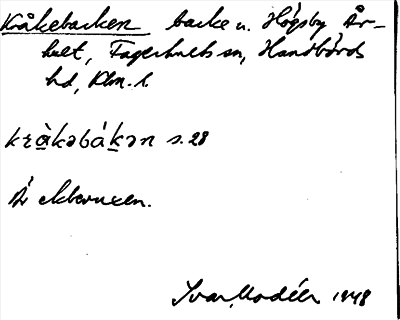 Kråkebacken backe u. Högsby År-
hult, Fagerhults sn, Handbörds
hd, Klm. l.
krà̱kəbák̠ən s. 28
Är ekbevuxen.
Ivar Modéer 1948